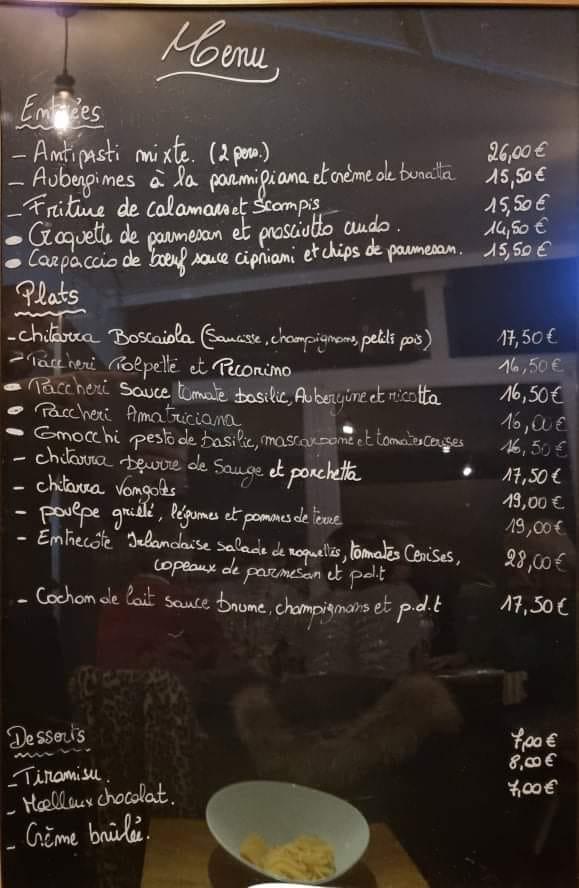 Menu
Entrées
- Antipasti mixte. (2 pers.) 26,00 €
- Aubergines à la parmigiana et crème de buratta 15,50 €
- Friture de calamars et Scampis 15,50 €
• Croquette de parmesan et prosciutto crudo. 14,50 €
• Carpaccio de bœuf sauce cipriani et chips de parmesan. 15,50 €
Plats
- chitarra Boscaiola (Saucisse, champignons, petits pois) 17,50 €
- Paccheri Polpette et Pecorino 16,50 €
• Paccheri Sauce tomate basilic, Aubergine et ricotta 16,50 €
• Paccheri Amatriciana 16,00 €
• Gnocchi pesto de basilic, mascarpone et tomates cerises 16,50 €
- chitarra beurre de Sauge et porchetta 17,50 €
- chitarra Vongoles 19,00 €
- poulpe grillé, légumes et pommes de terre 19,00 €
- Entrecôte Irlandaise salade de roquettes, tomates Cerises, 28,00 €
copeaux de parmesan et p.d.t
- Cochon de lait sauce brune, champignons et p.d.t 17,50 €
Desserts
- Tiramisu. 7,00 €
- Moelleux chocolat. 8,00 €
- Crème brûlée. 7,00 €